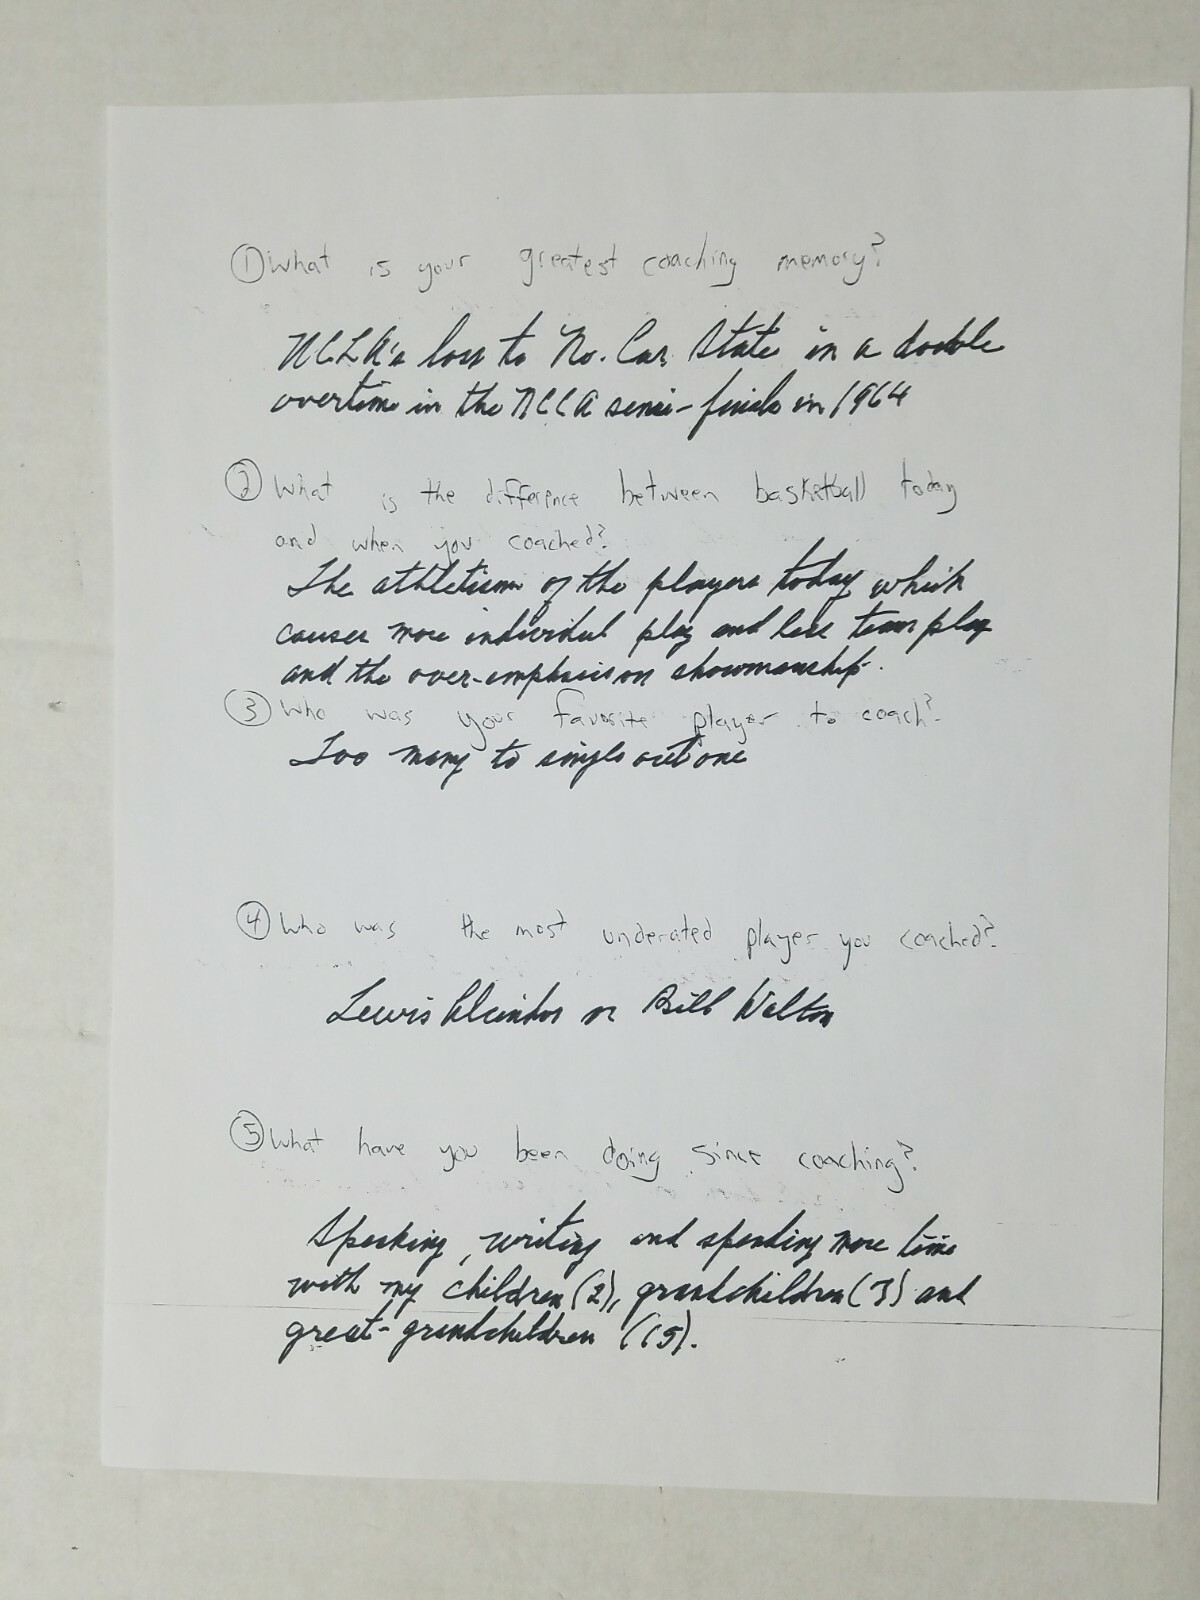 ① What is your greatest coaching memory?
UCLA's loss to No. Car. State in a double
overtime in the NCAA semi-finals in 1964
② What is the difference between basketball today
and when you coached?
The athleticism of the players today which
causes more individual play and less team play
and the over-emphasis on showmanship.
③ Who was your favorite player to coach?
Too many to single out one
④ Who was the most underated player you coached?
Lewis Alcindor or Bill Walton
⑤ What have you been doing since coaching?
Speaking, writing and spending more time
with my children (2), grandchildren (7) and
great-grandchildren (15).